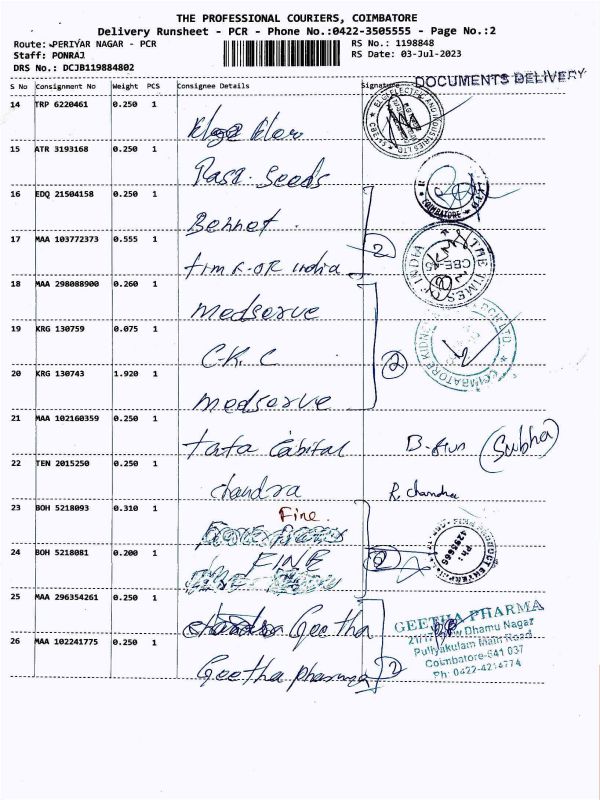 THE PROFESSIONAL COURIERS, COIMBATORE
Delivery Runsheet - PCR - Phone No.:0422-3505555 - Page No.:2
Route: PERIYAR NAGAR - PCR
RS No.: 1198848
Staff: PONRAJ
RS Date: 03-Jul-2023
DRS No.: DCJB119884802
DOCUMENTS DELIVERY
S No Consignment No Weight PCS Consignee Details Signature
14 TRP 6220461 0.250 1
15 ATR 3193168 0.250 1
Rasi Seeds
16 EDQ 21504158 0.250 1
Bennet
COIMBATORE
17 MAA 103772373 0.555 1
times of india
2
THE TIMES OF INDIA
CBE-45
18 MAA 298088900 0.260 1
medserve
19 KRG 130759 0.075 1
C.K.C
2
COIMBATORE KIDNEY
20 KRG 130743 1.920 1
medserve
21 MAA 102160359 0.250 1
tata Capital
(Subha)
22 TEN 2015250 0.250 1
chandra R. chandra
23 BOH 5218093 0.310 1
Fine
24 BOH 5218081 0.200 1
FINE
2
25 MAA 296354261 0.250 1
Geetha
GEETHA PHARMA
Dhamu Nagar
Puliyakulam Main Road
Coimbatore-641 037
26 MAA 102241775 0.250 1
Geetha pharma
2